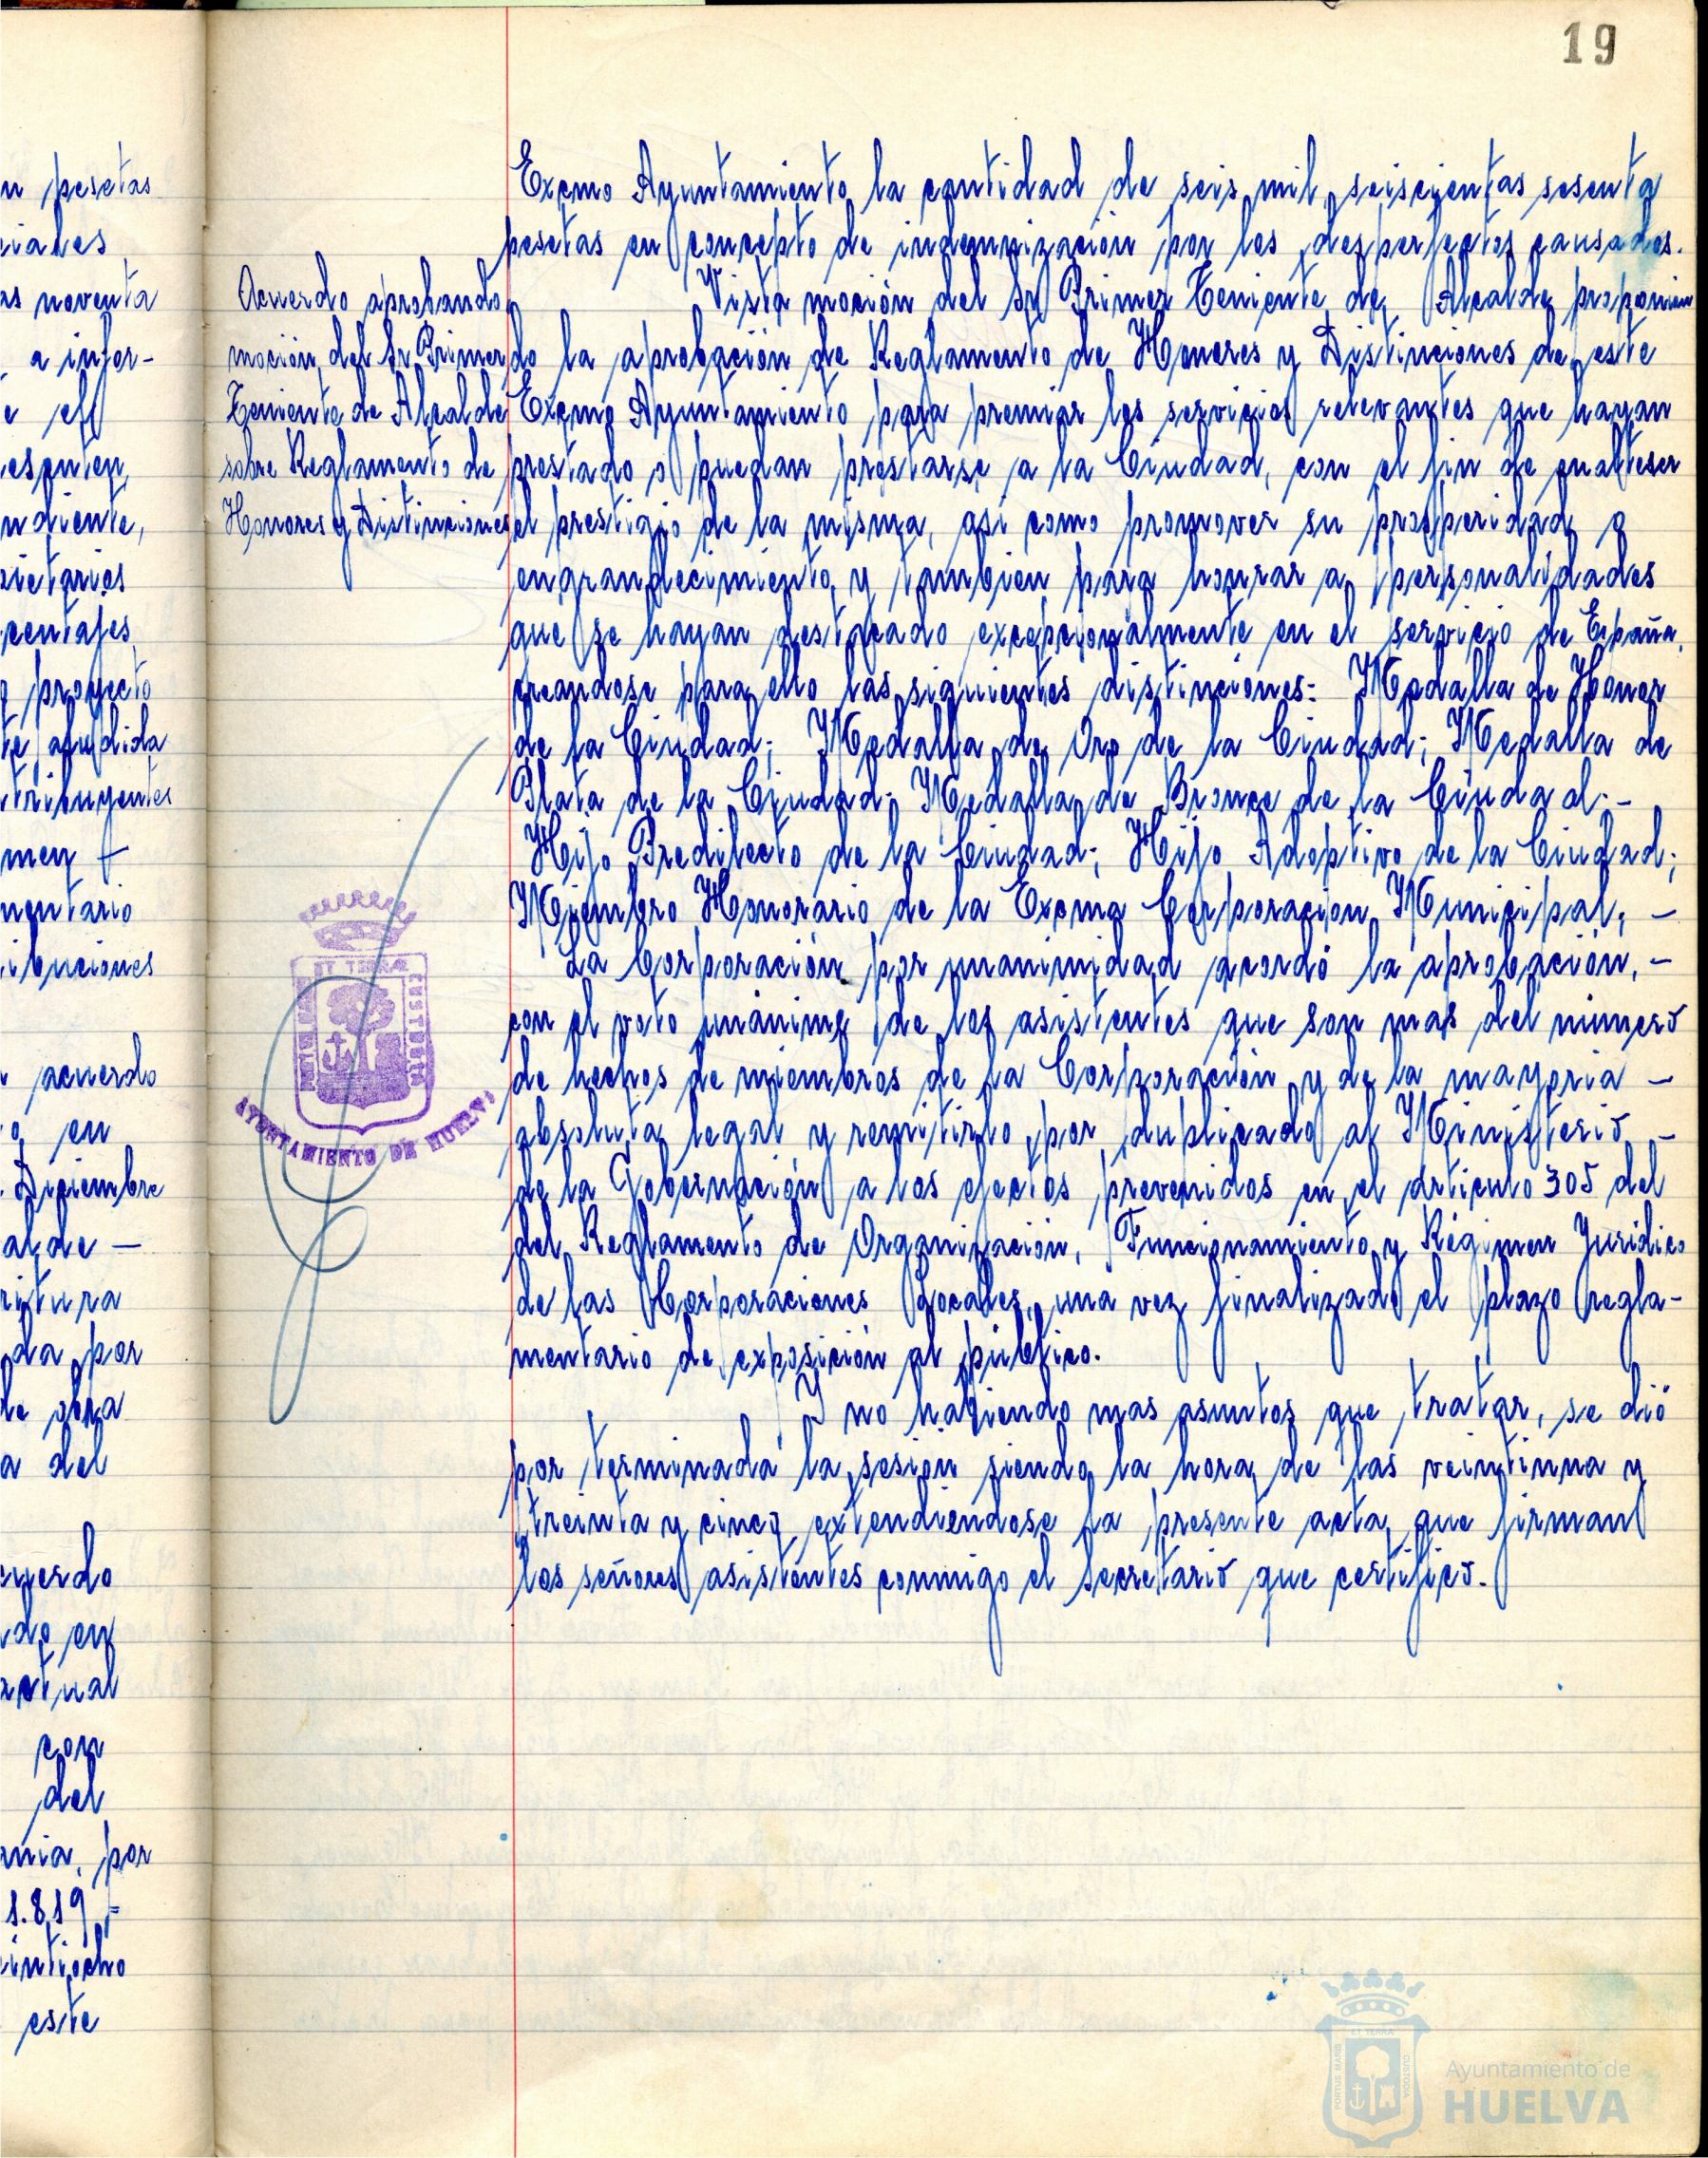 19
n pesetas
ciales
as noventa
a infor-
e el
esenten,
ndiente,
pietarios
centajes
proyecto
te aludida
tribuyentes
men
mentario
ibuciones
acuerdo
en
Diciembre
alde -
ritura
da por
de obra
a del
cuerdo
do en
actual
con
del
ania, por
1.819 =
eintiocho
este
Acuerdo aprobando
moción del Sr Primer
Teniente de Alcalde
sobre Reglamento de
Honores y Distinciones
Excmo Ayuntamiento la cantidad de seis mil, seiscientas sesenta
pesetas en concepto de indemnización por los desperfectos causados.
Vista moción del Sr Primer Teniente de Alcalde proponien
do la aprobación de Reglamento de Honores y Distinciones de este
Excmo Ayuntamiento para premiar los servicios relevantes que hayan
prestado o puedan prestarse a la Ciudad, con el fin de enalteser
el prestigio de la misma, asi como promover su prosperidad o
engrandecimiento y tambien para honrar a personalidades
que se hayan destacado excepcionalmente en el servicio de España,
creandose para ello las siguientes distinciones: Medalla de Honor
de la Ciudad; Medalla de Oro de la Ciudad; Medalla de
Plata de la Ciudad; Medalla de Bronce de la Ciudad;-
Hijo Predilecto de la Ciudad; Hijo Adoptivo de la Ciudad;
Miembro Honorario de la Excma Corporación Municipal; -
La Corporación por unanimidad acordó la aprobación, -
con el voto unánime de los asistentes que son mas del número
de hechos de miembros de la Corporación y de la mayoria -
absoluta legal y remitirlo por duplicado al Ministerio -
de la Gobernación a los efectos prevenidos en el artículo 305 del
del Reglamento de Organización, Funcionamiento y Régimen Juridico
de las Corporaciones Locales, una vez finalizado el plazo regla-
mentario de exposición al público.
Y no habiendo mas asuntos que tratar, se dió
por terminada la sesión siendo la hora de las veintiuna y
treinta y cinco extendiendose la presente acta que firman
los señores asistentes conmigo el Secretario que certifico.
ET TERRAE
CUSTODIA
AYUNTAMIENTO DE HUELVA
ET TERRA
PORTUS MARIS
CUSTODIA
Ayuntamiento de
HUELVA